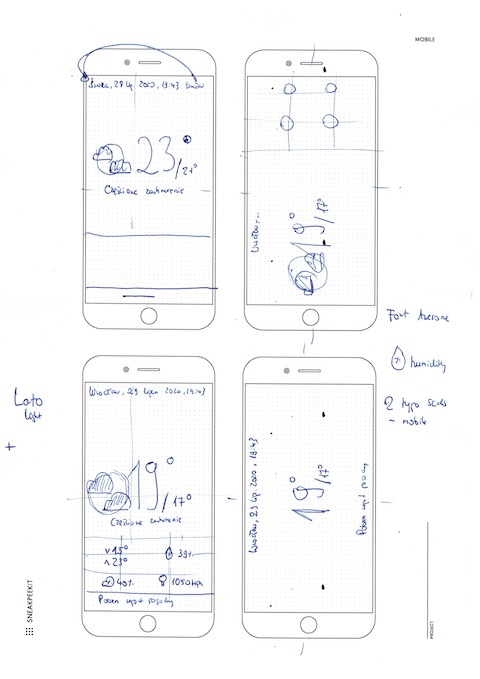 MOBILE
Środa, 29 lip. 2020, 19:43
23°/21°
Częściowe zachmurzenie
Wrocław, ...
19°/17°
Font Awesome
humidity
2 typo scales
- mobile
Lato
light
+
Wrocław, 29 lipca 2020, 19:43
19°/17°
Częściowe zachmurzenie
v 15°
^ 23°
39%
40%
1050 hpa
Pokaż wykr. pogody
Wrocław, 29 lip 2020, 19:43
19°/17°
SNEAKPEEKIT
PROJECT